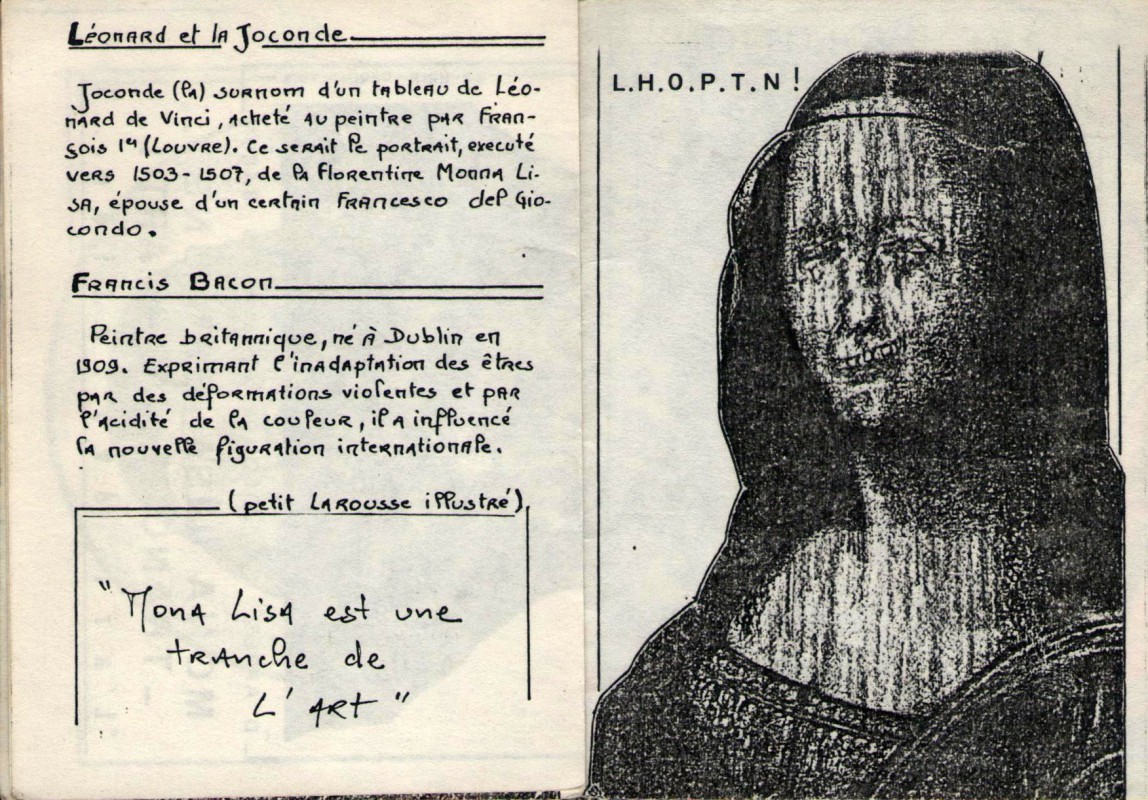 Léonard et la Joconde
Joconde (la) surnom d'un tableau de Léo-
nard de Vinci, acheté au peintre par Fran-
çois 1er (Louvre). Ce serait le portrait, executé
vers 1503-1507, de la florentine Monna Li-
sa, épouse d'un certain Francesco del Gio-
condo.
Francis Bacon
Peintre britannique, né à Dublin en
1909. Exprimant l'inadaptation des êtres
par des déformations violentes et par
l'acidité de la couleur, il a influencé
la nouvelle figuration internationale.
(petit Larousse illustré)
"Mona Lisa est une
tranche de
L'art"
L.H.O.P.T.N!